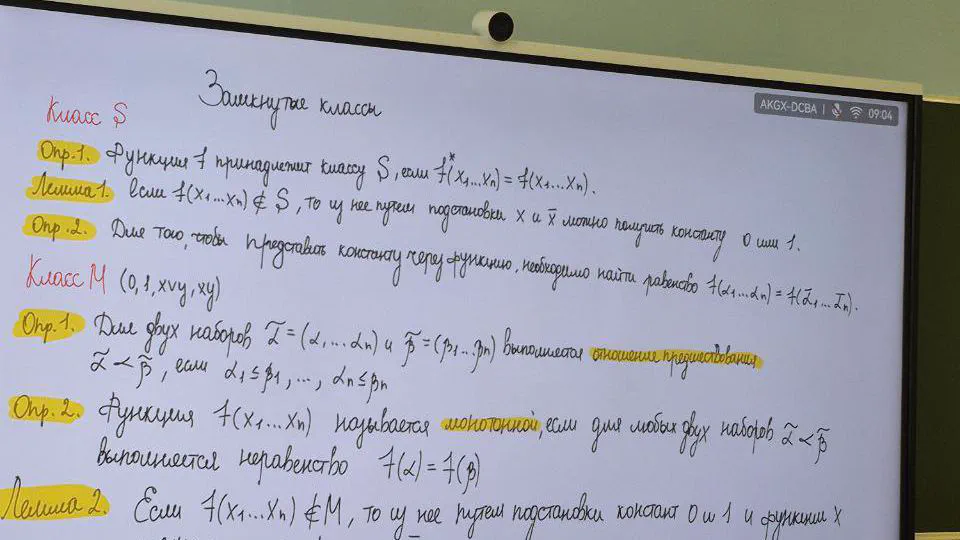 AKGX-DCBA 09:04
Замкнутые классы
Класс S
Опр.1. Функция f принадлежит классу S, если f*(x₁...xₙ) = f(x₁...xₙ).
Лемма 1. Если f(x₁...xₙ) ∉ S, то из нее путем подстановки x и x̄ можно получить константу 0 или 1.
Опр.2. Для того, чтобы представить константу через функцию, необходимо найти равенство f(α₁...αₙ) = f(ᾱ₁...ᾱₙ).
Класс M (0, 1, x∨y, xy)
Опр.1. Для двух наборов α̃ = (α₁...αₙ) и β̃ = (β₁...βₙ) выполняется отношение предшествования
α̃ ≺ β̃, если α₁ ≤ β₁, ..., αₙ ≤ βₙ
Опр.2. Функция f(x₁...xₙ) называется монотонной, если для любых двух наборов α̃ ≺ β̃
выполняется неравенство f(α) = f(β)
Лемма 2. Если f(x₁...xₙ) ∉ M, то из нее путем подстановки констант 0 и 1 и функции x